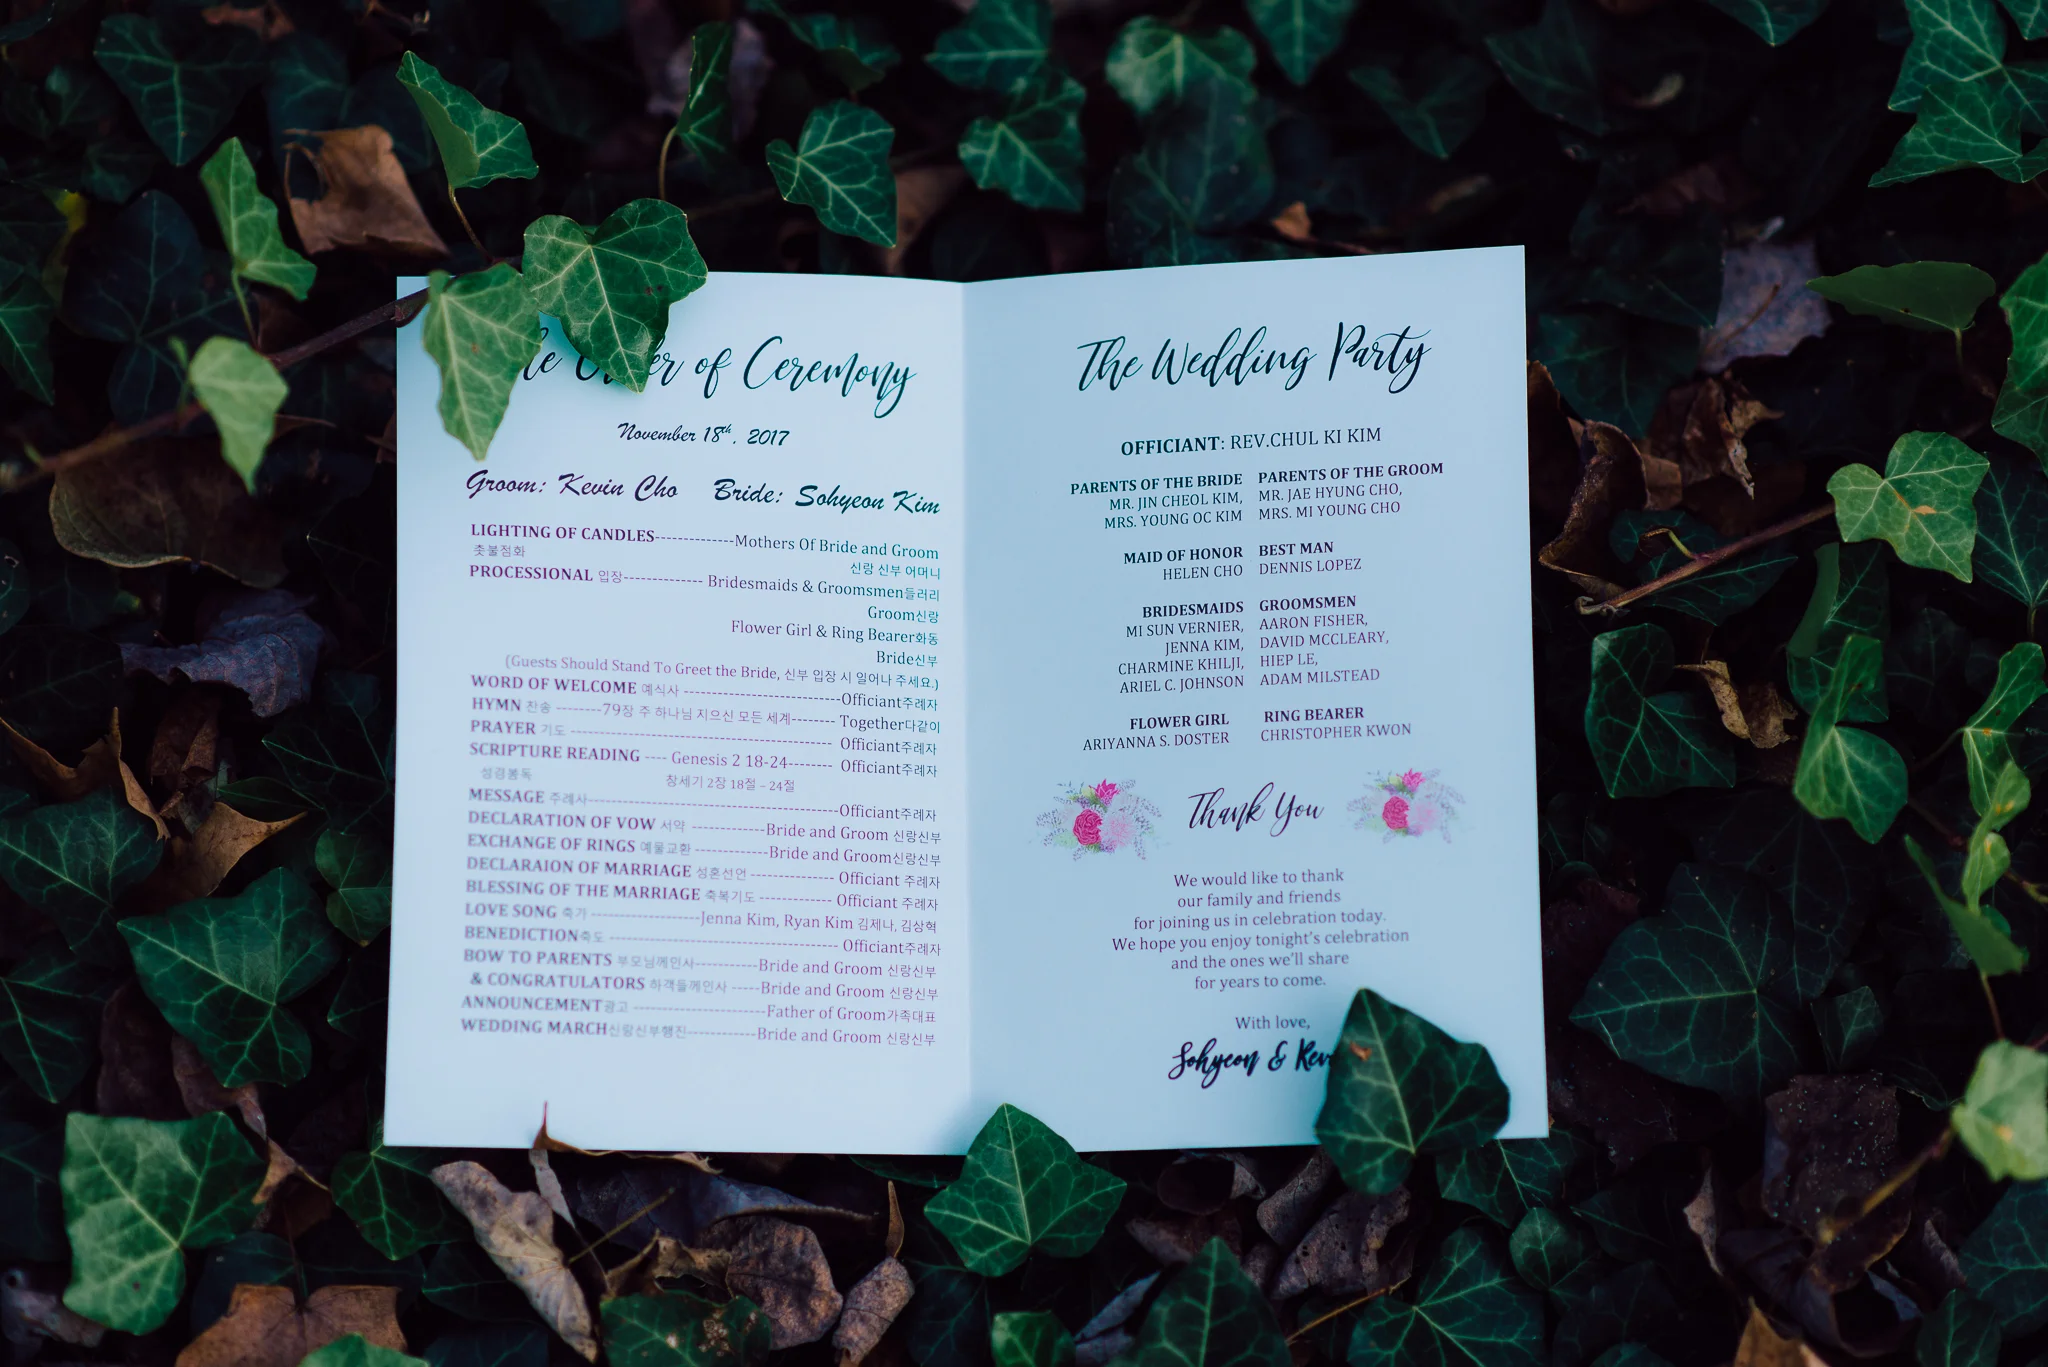 of Ceremony
November 18th, 2017
Groom: Kevin Cho Bride: Sohyeon Kim
LIGHTING OF CANDLES--------------Mothers Of Bride and Groom
촛불점화 신랑 신부 어머니
PROCESSIONAL 입장-------------- Bridesmaids & Groomsmen들러리
Groom신랑
Flower Girl & Ring Bearer화동
Bride신부
(Guests Should Stand To Greet the Bride, 신부 입장 시 일어나 주세요.)
WORD OF WELCOME 예식사 ----------------------------Officiant주례자
HYMN 찬송 --------79장 주 하나님 지으신 모든 세계-------- Together다같이
PRAYER 기도 ---------------------------------------------- Officiant주례자
SCRIPTURE READING ---- Genesis 2 18-24-------- Officiant주례자
성경봉독 창세기 2장 18절 – 24절
MESSAGE 주례사---------------------------------------------Officiant주례자
DECLARATION OF VOW 서약 -------------Bride and Groom 신랑신부
EXCHANGE OF RINGS 예물교환 -------------Bride and Groom신랑신부
DECLARAION OF MARRIAGE 성혼선언 --------------- Officiant 주례자
BLESSING OF THE MARRIAGE 축복기도 -------------- Officiant 주례자
LOVE SONG 축가 -------------------Jenna Kim, Ryan Kim 김제나, 김상혁
BENEDICTION축도 ----------------------------------------- Officiant주례자
BOW TO PARENTS 부모님께인사-----------Bride and Groom 신랑신부
& CONGRATULATORS 하객들께인사 -----Bride and Groom 신랑신부
ANNOUNCEMENT광고 ------------------------Father of Groom가족대표
WEDDING MARCH신랑신부행진------------Bride and Groom 신랑신부
The Wedding Party
OFFICIANT: REV.CHUL KI KIM
PARENTS OF THE BRIDE PARENTS OF THE GROOM
MR. JIN CHEOL KIM, MR. JAE HYUNG CHO,
MRS. YOUNG OC KIM MRS. MI YOUNG CHO
MAID OF HONOR BEST MAN
HELEN CHO DENNIS LOPEZ
BRIDESMAIDS GROOMSMEN
MI SUN VERNIER, AARON FISHER,
JENNA KIM, DAVID MCCLEARY,
CHARMINE KHILJI, HIEP LE,
ARIEL C. JOHNSON ADAM MILSTEAD
FLOWER GIRL RING BEARER
ARIYANNA S. DOSTER CHRISTOPHER KWON
Thank You
We would like to thank
our family and friends
for joining us in celebration today.
We hope you enjoy tonight's celebration
and the ones we'll share
for years to come.
With love,
Sohyeon &